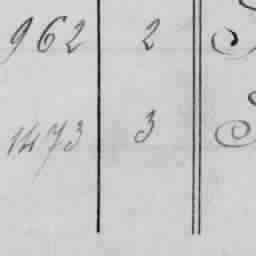 962 2
1473 3